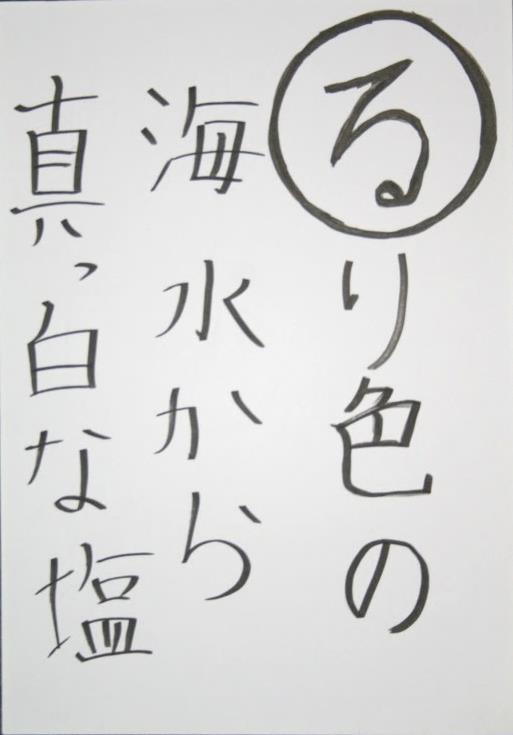 るり色の
海水から
真っ白な塩